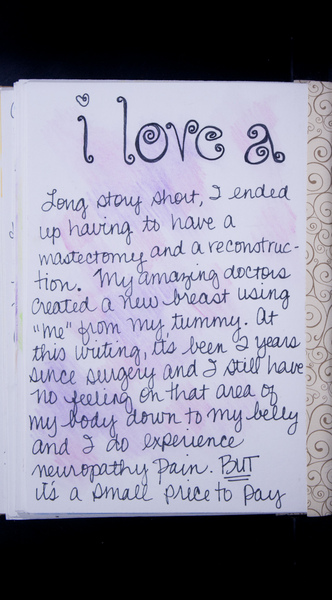 i love a
Long story short, I ended
up having to have a
mastectomy and a reconstruc-
tion. My amazing doctors
created a new breast using
"me" from my tummy. At
this writing, its been 2 years
since surgery and I still have
no feeling on that area of
my body down to my belly
and I do experience
neuropathy pain. BUT
it's a small price to pay